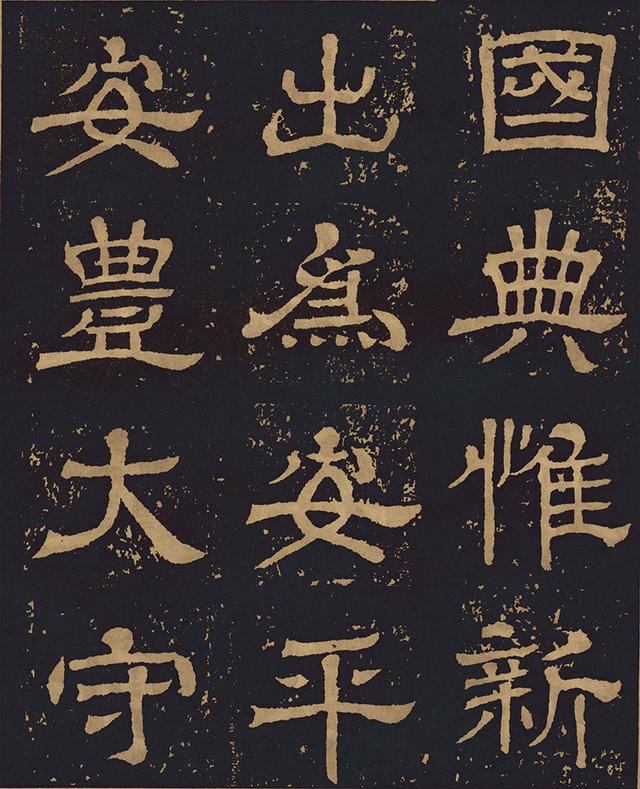 國典惟新
出為安平
安豊太守